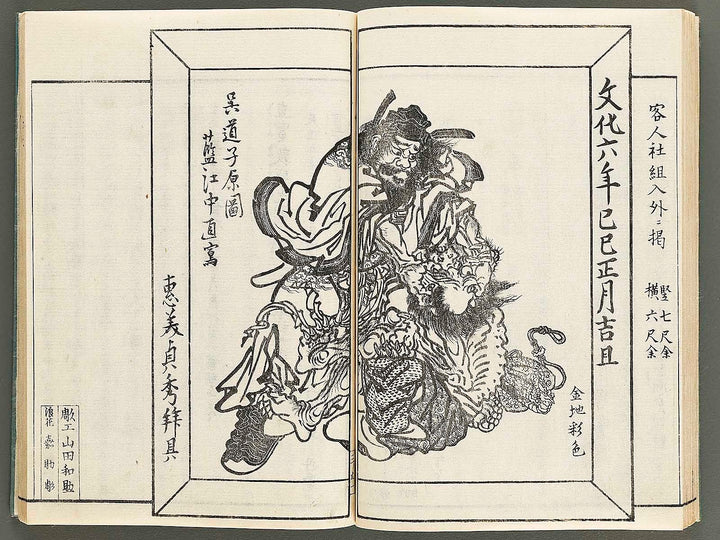 客人社組入外ニ掲
竪七尺余
横六尺余
文化六年己巳正月吉且
金地彩色
呉道子原圖
藍江中直寫
惠美貞秀拜具
彫工 山田和助
浪花